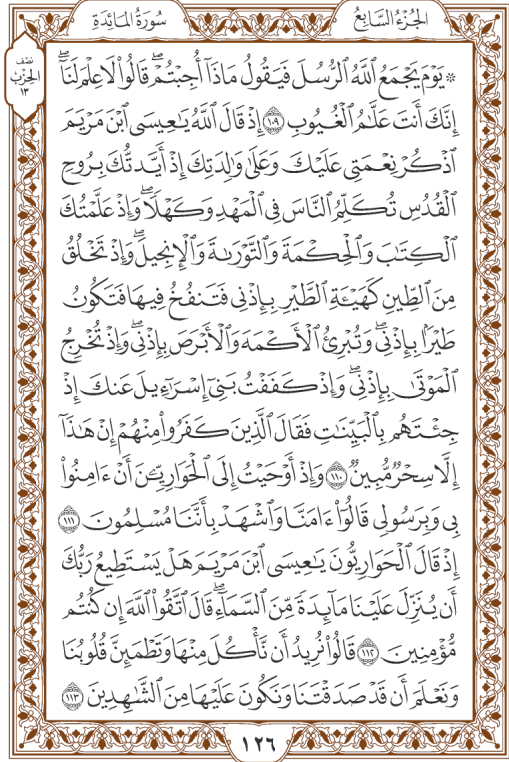 الجُزْءُ السَّابِعُ
سُورَةُ المَائِدَةِ
نِصْفُ
الحِزْبِ
١٣
۞ يَوْمَ يَجْمَعُ ٱللَّهُ ٱلرُّسُلَ فَيَقُولُ مَاذَآ أُجِبْتُمْۖ قَالُواْ لَا عِلْمَ لَنَآۖ
إِنَّكَ أَنتَ عَلَّٰمُ ٱلْغُيُوبِ ١٠٩ إِذْ قَالَ ٱللَّهُ يَٰعِيسَى ٱبْنَ مَرْيَمَ
ٱذْكُرْ نِعْمَتِي عَلَيْكَ وَعَلَىٰ وَٰلِدَتِكَ إِذْ أَيَّدتُّكَ بِرُوحِ
ٱلْقُدُسِ تُكَلِّمُ ٱلنَّاسَ فِي ٱلْمَهْدِ وَكَهْلًاۖ وَإِذْ عَلَّمْتُكَ
ٱلْكِتَٰبَ وَٱلْحِكْمَةَ وَٱلتَّوْرَىٰةَ وَٱلْإِنجِيلَۖ وَإِذْ تَخْلُقُ
مِنَ ٱلطِّينِ كَهَيْـَٔةِ ٱلطَّيْرِ بِإِذْنِي فَتَنفُخُ فِيهَا فَتَكُونُ
طَيْرَۢا بِإِذْنِيۖ وَتُبْرِئُ ٱلْأَكْمَهَ وَٱلْأَبْرَصَ بِإِذْنِيۖ وَإِذْ تُخْرِجُ
ٱلْمَوْتَىٰ بِإِذْنِيۖ وَإِذْ كَفَفْتُ بَنِيٓ إِسْرَٰٓءِيلَ عَنكَ إِذْ
جِئْتَهُم بِٱلْبَيِّنَٰتِ فَقَالَ ٱلَّذِينَ كَفَرُواْ مِنْهُمْ إِنْ هَٰذَآ
إِلَّا سِحْرٌ مُّبِينٌ ١١٠ وَإِذْ أَوْحَيْتُ إِلَى ٱلْحَوَارِيِّـۧنَ أَنْ ءَامِنُواْ
بِي وَبِرَسُولِي قَالُوٓاْ ءَامَنَّا وَٱشْهَدْ بِأَنَّنَا مُسْلِمُونَ ١١١
إِذْ قَالَ ٱلْحَوَارِيُّونَ يَٰعِيسَى ٱبْنَ مَرْيَمَ هَلْ يَسْتَطِيعُ رَبُّكَ
أَن يُنَزِّلَ عَلَيْنَا مَآئِدَةً مِّنَ ٱلسَّمَآءِۖ قَالَ ٱتَّقُواْ ٱللَّهَ إِن كُنتُم
مُّؤْمِنِينَ ١١٢ قَالُواْ نُرِيدُ أَن نَّأْكُلَ مِنْهَا وَتَطْمَئِنَّ قُلُوبُنَا
وَنَعْلَمَ أَن قَدْ صَدَقْتَنَا وَنَكُونَ عَلَيْهَا مِنَ ٱلشَّٰهِدِينَ ١١٣
١٢٦